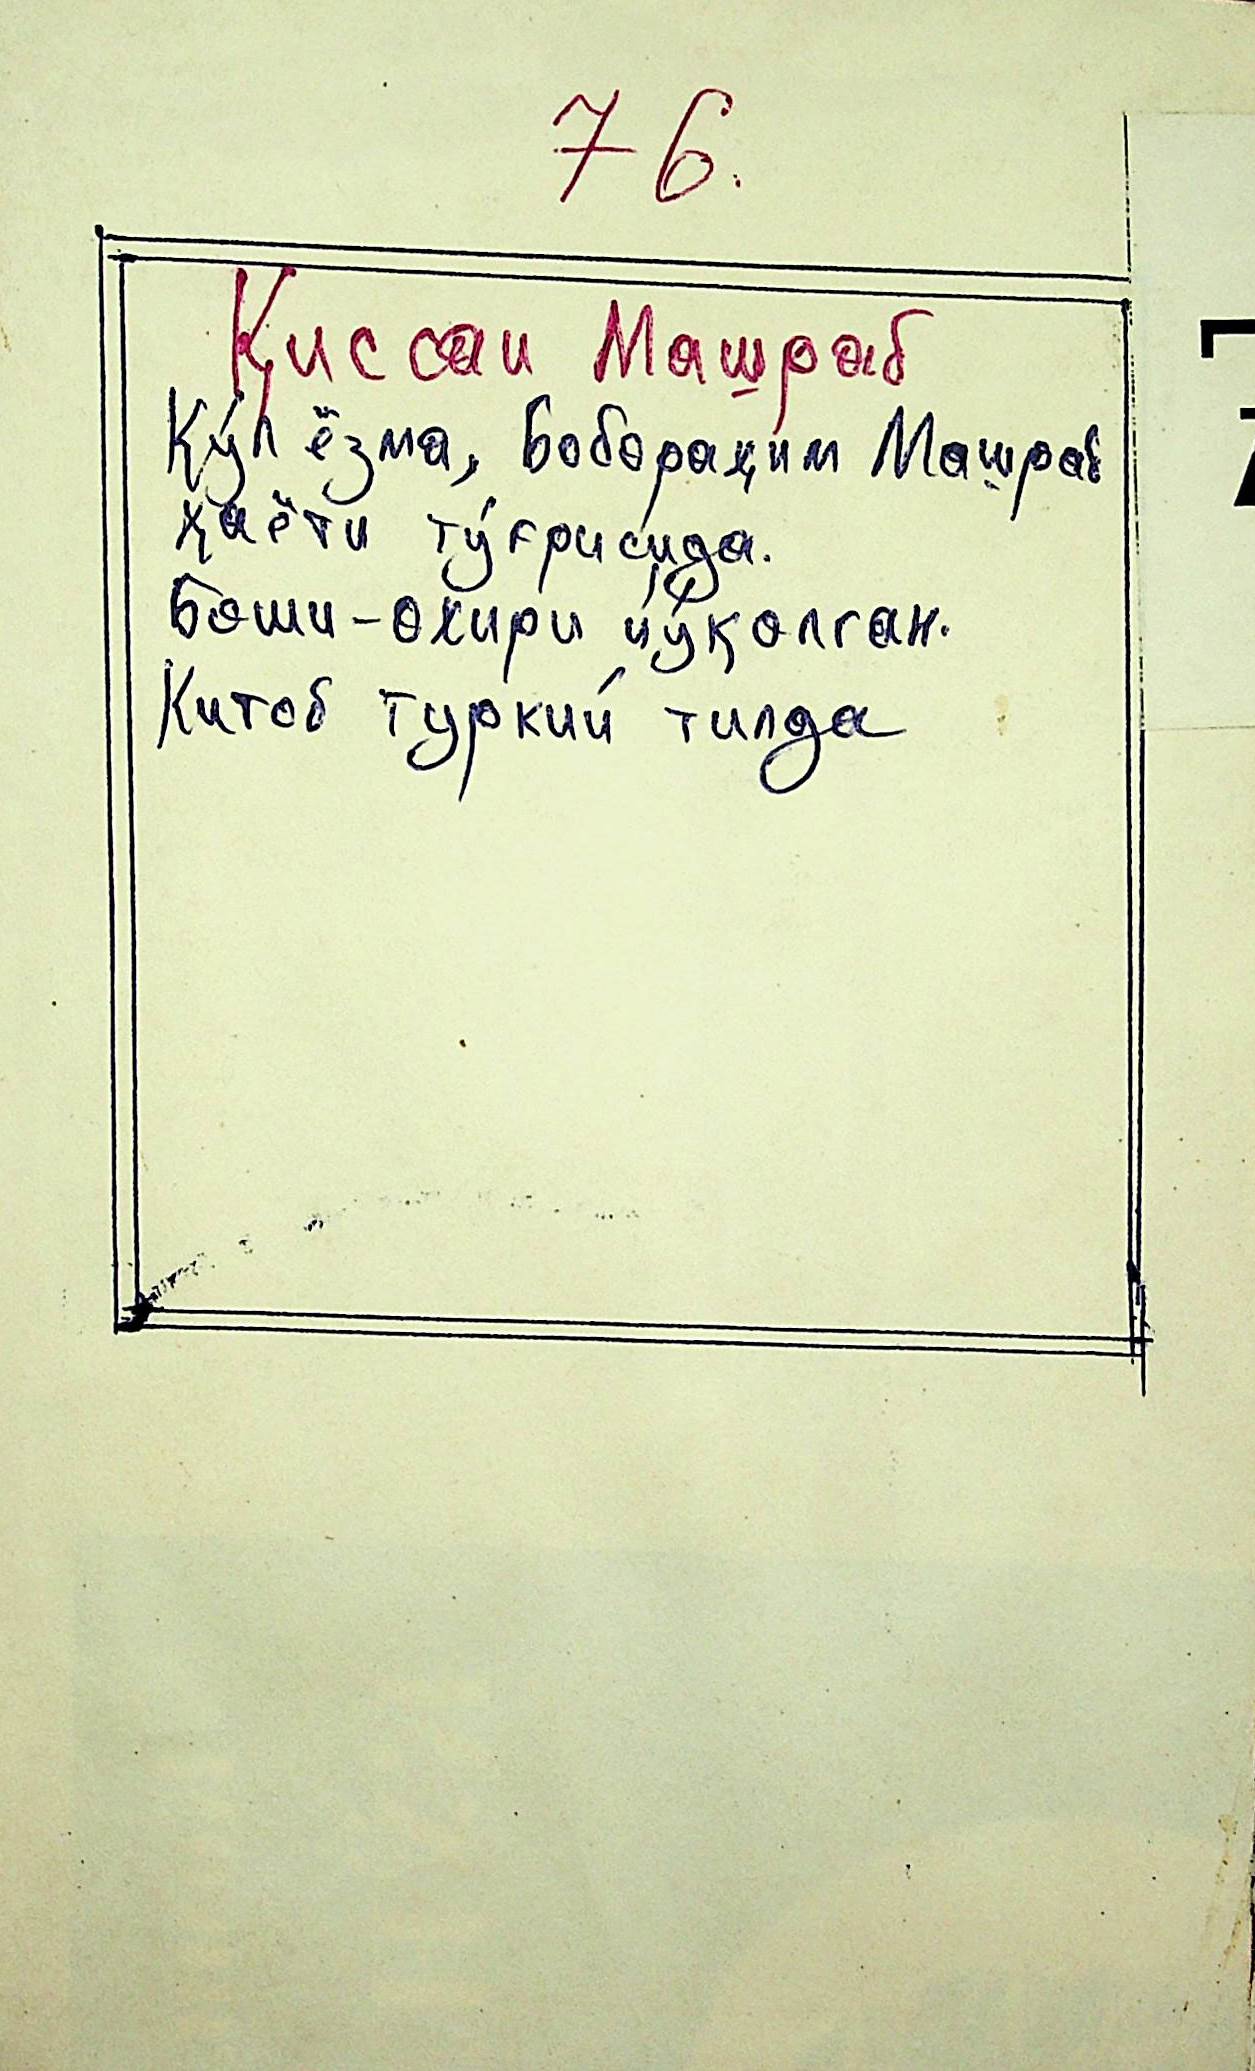 76.
Қиссаи Машраб
Қўл ёзма, Бобораҳим Машраб
ҳаёти тўғрисида.
Боши-охири йўқолган.
Китоб туркий тилда